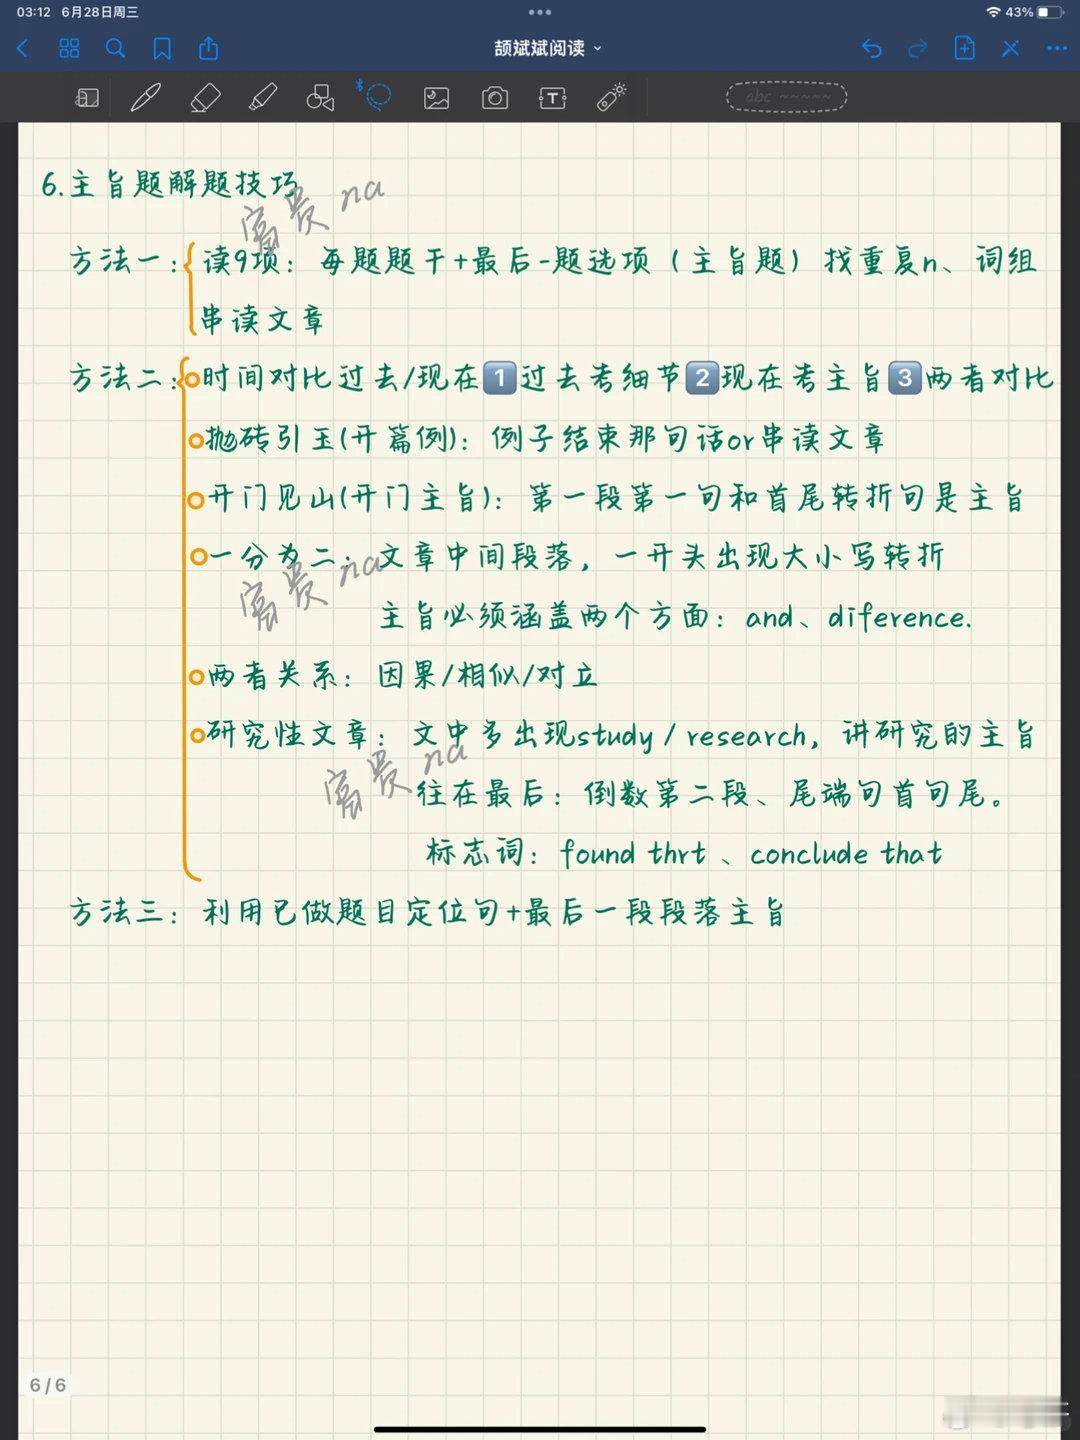 03:12 6月28日周三
43%
颉斌斌阅读
abc
6.主旨题解题技巧
富贵na
方法一：读9项：每题题干+最后-题选项（主旨题）找重复n、词组
串读文章
方法二：时间对比过去/现在1过去考细节2现在考主旨3两者对比
抛砖引玉(开篇例)：例子结束那句话or串读文章
开门见山(开门主旨)：第一段第一句和首尾转折句是主旨
一分为二：文章中间段落，一开头出现大小写转折
富贵na
主旨必须涵盖两个方面：and、diference.
两者关系：因果/相似/对立
研究性文章：文中多出现study/research，讲研究的主旨
富贵na
往在最后：倒数第二段、尾端句首句尾。
标志词：found thrt、conclude that
方法三：利用已做题目定位句+最后一段段落主旨
6/6